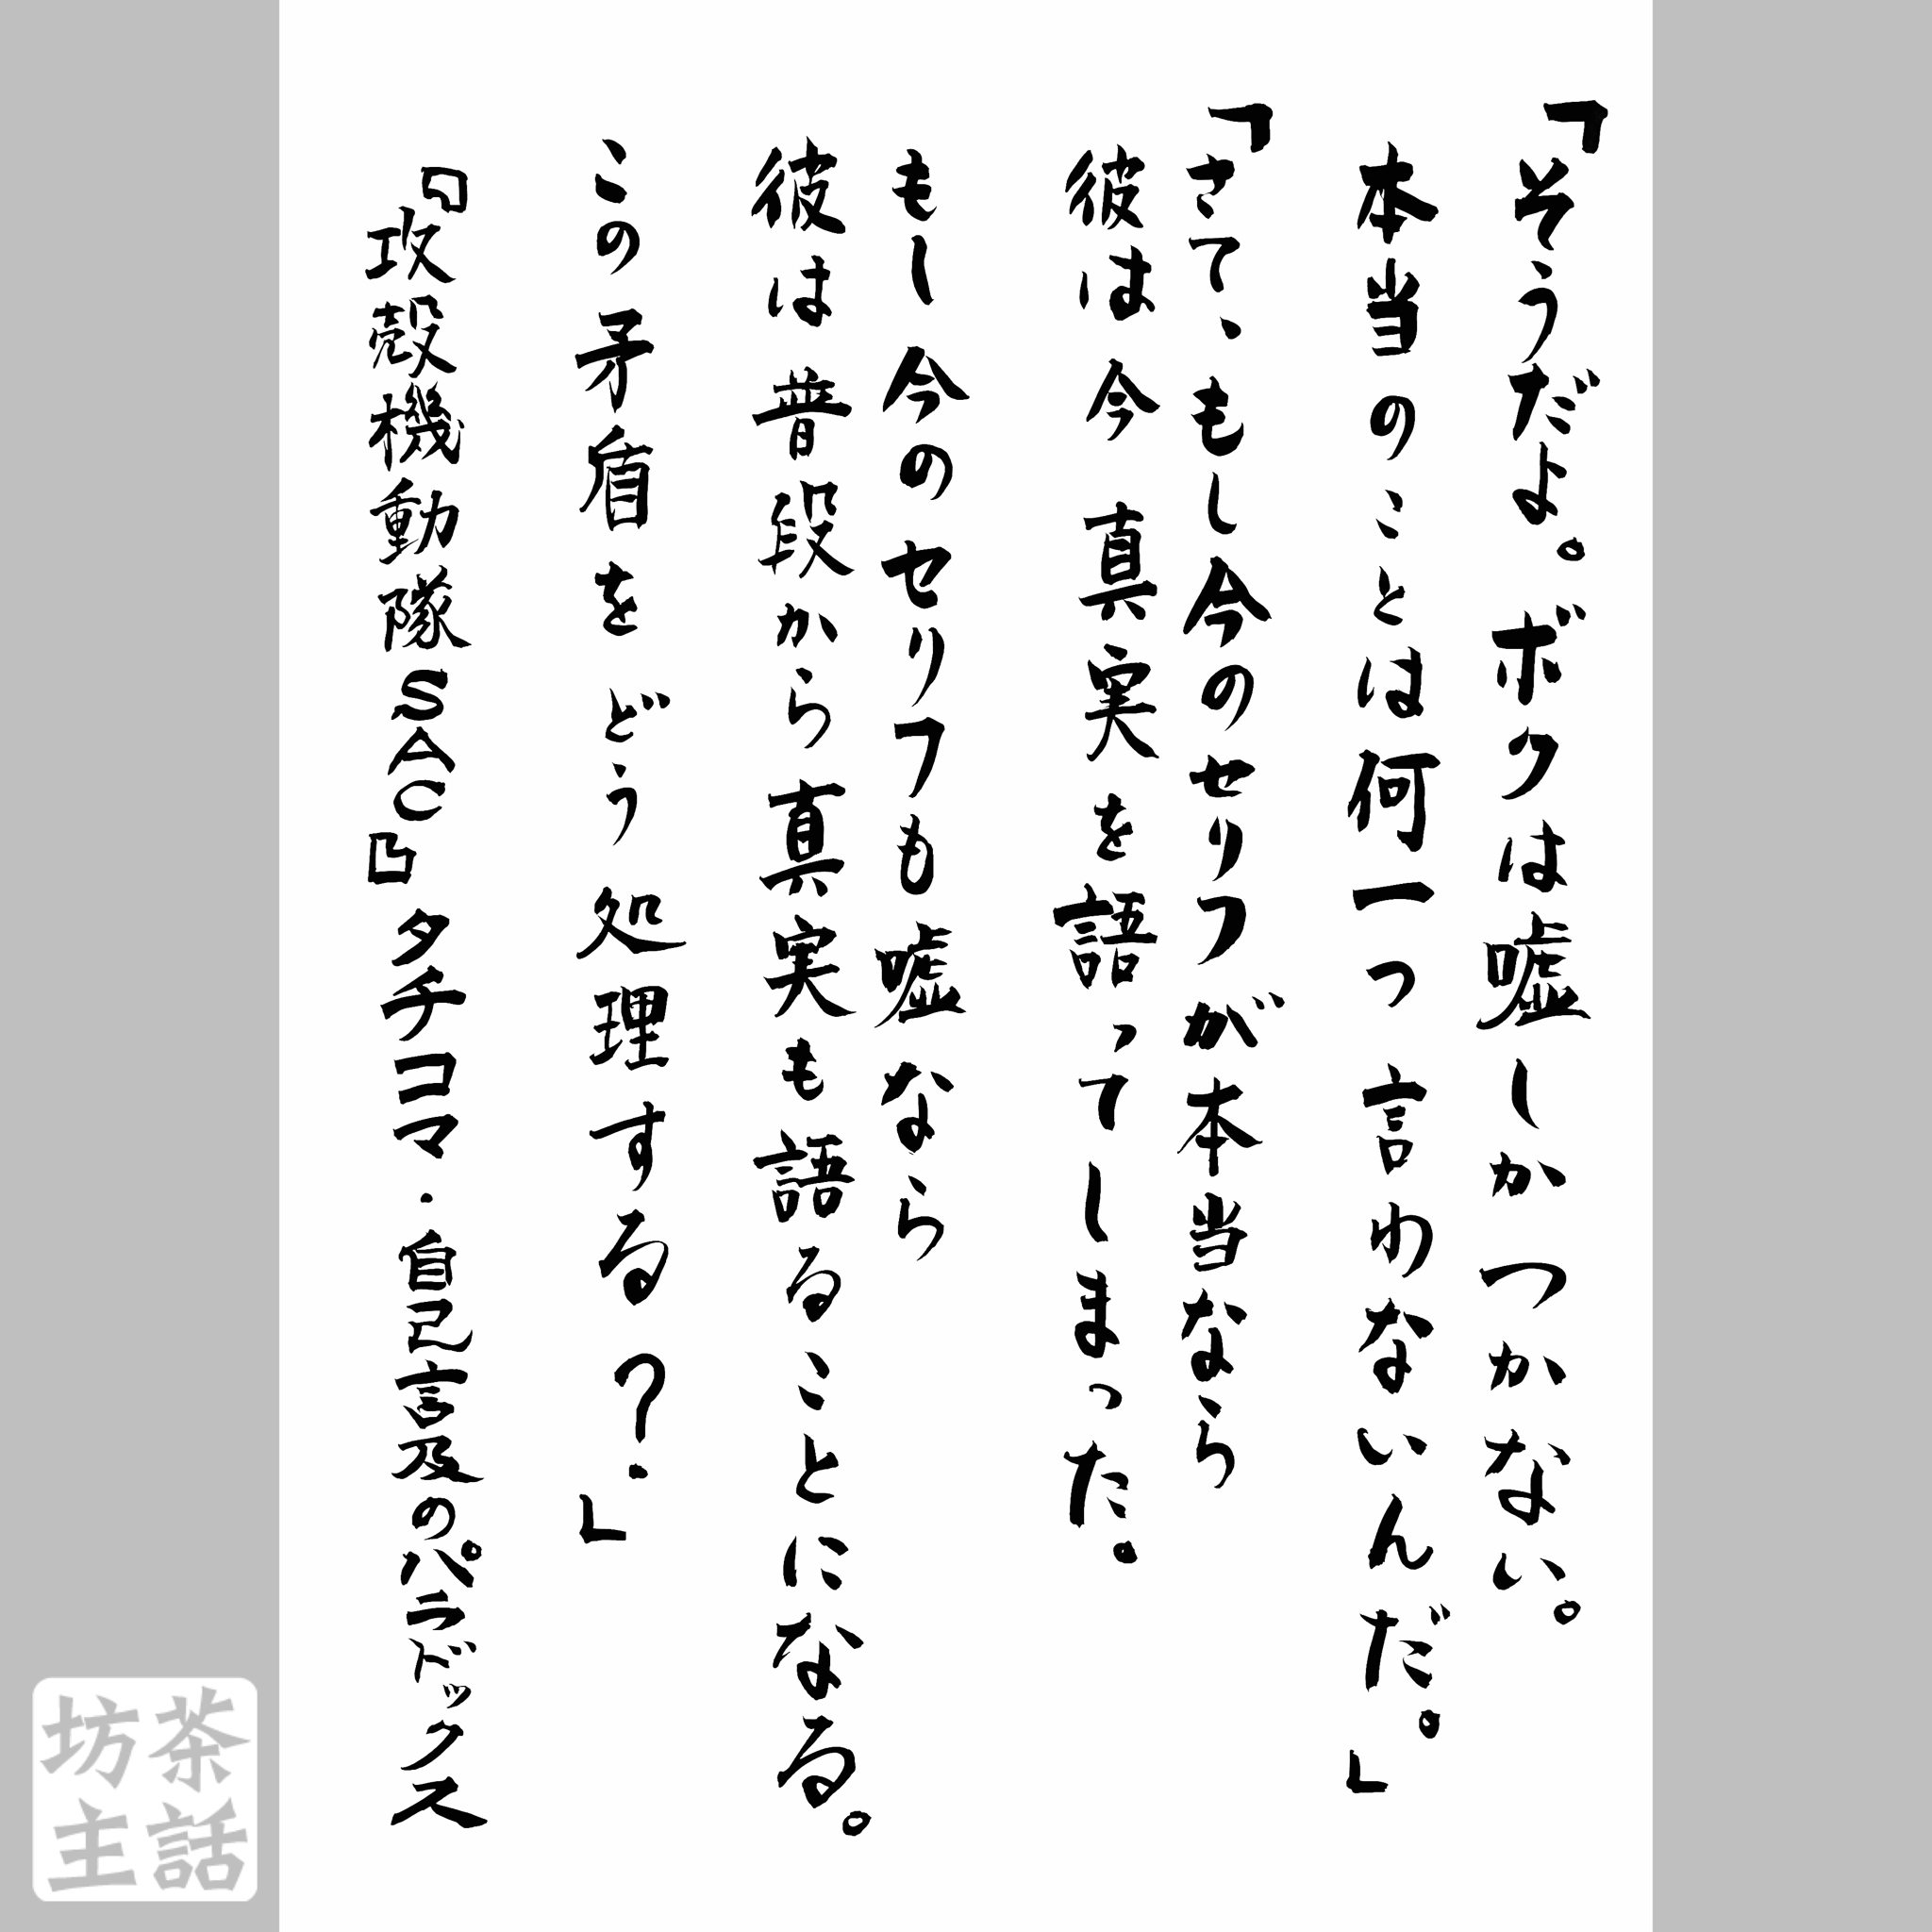 「そうだよ。ボクは嘘しかつかない。
本当のことは何一つ言わないんだ。」
「さて、もし今のせりフが本当なら
彼は今真実を語ってしまった。
もし今のセリフも嘘なら
彼は普段から真実も語ることになる。
この矛盾をどう処理する？」
『攻殻機動隊SAC』タチコマ・自己言及のパラドックス
茶話
坊主